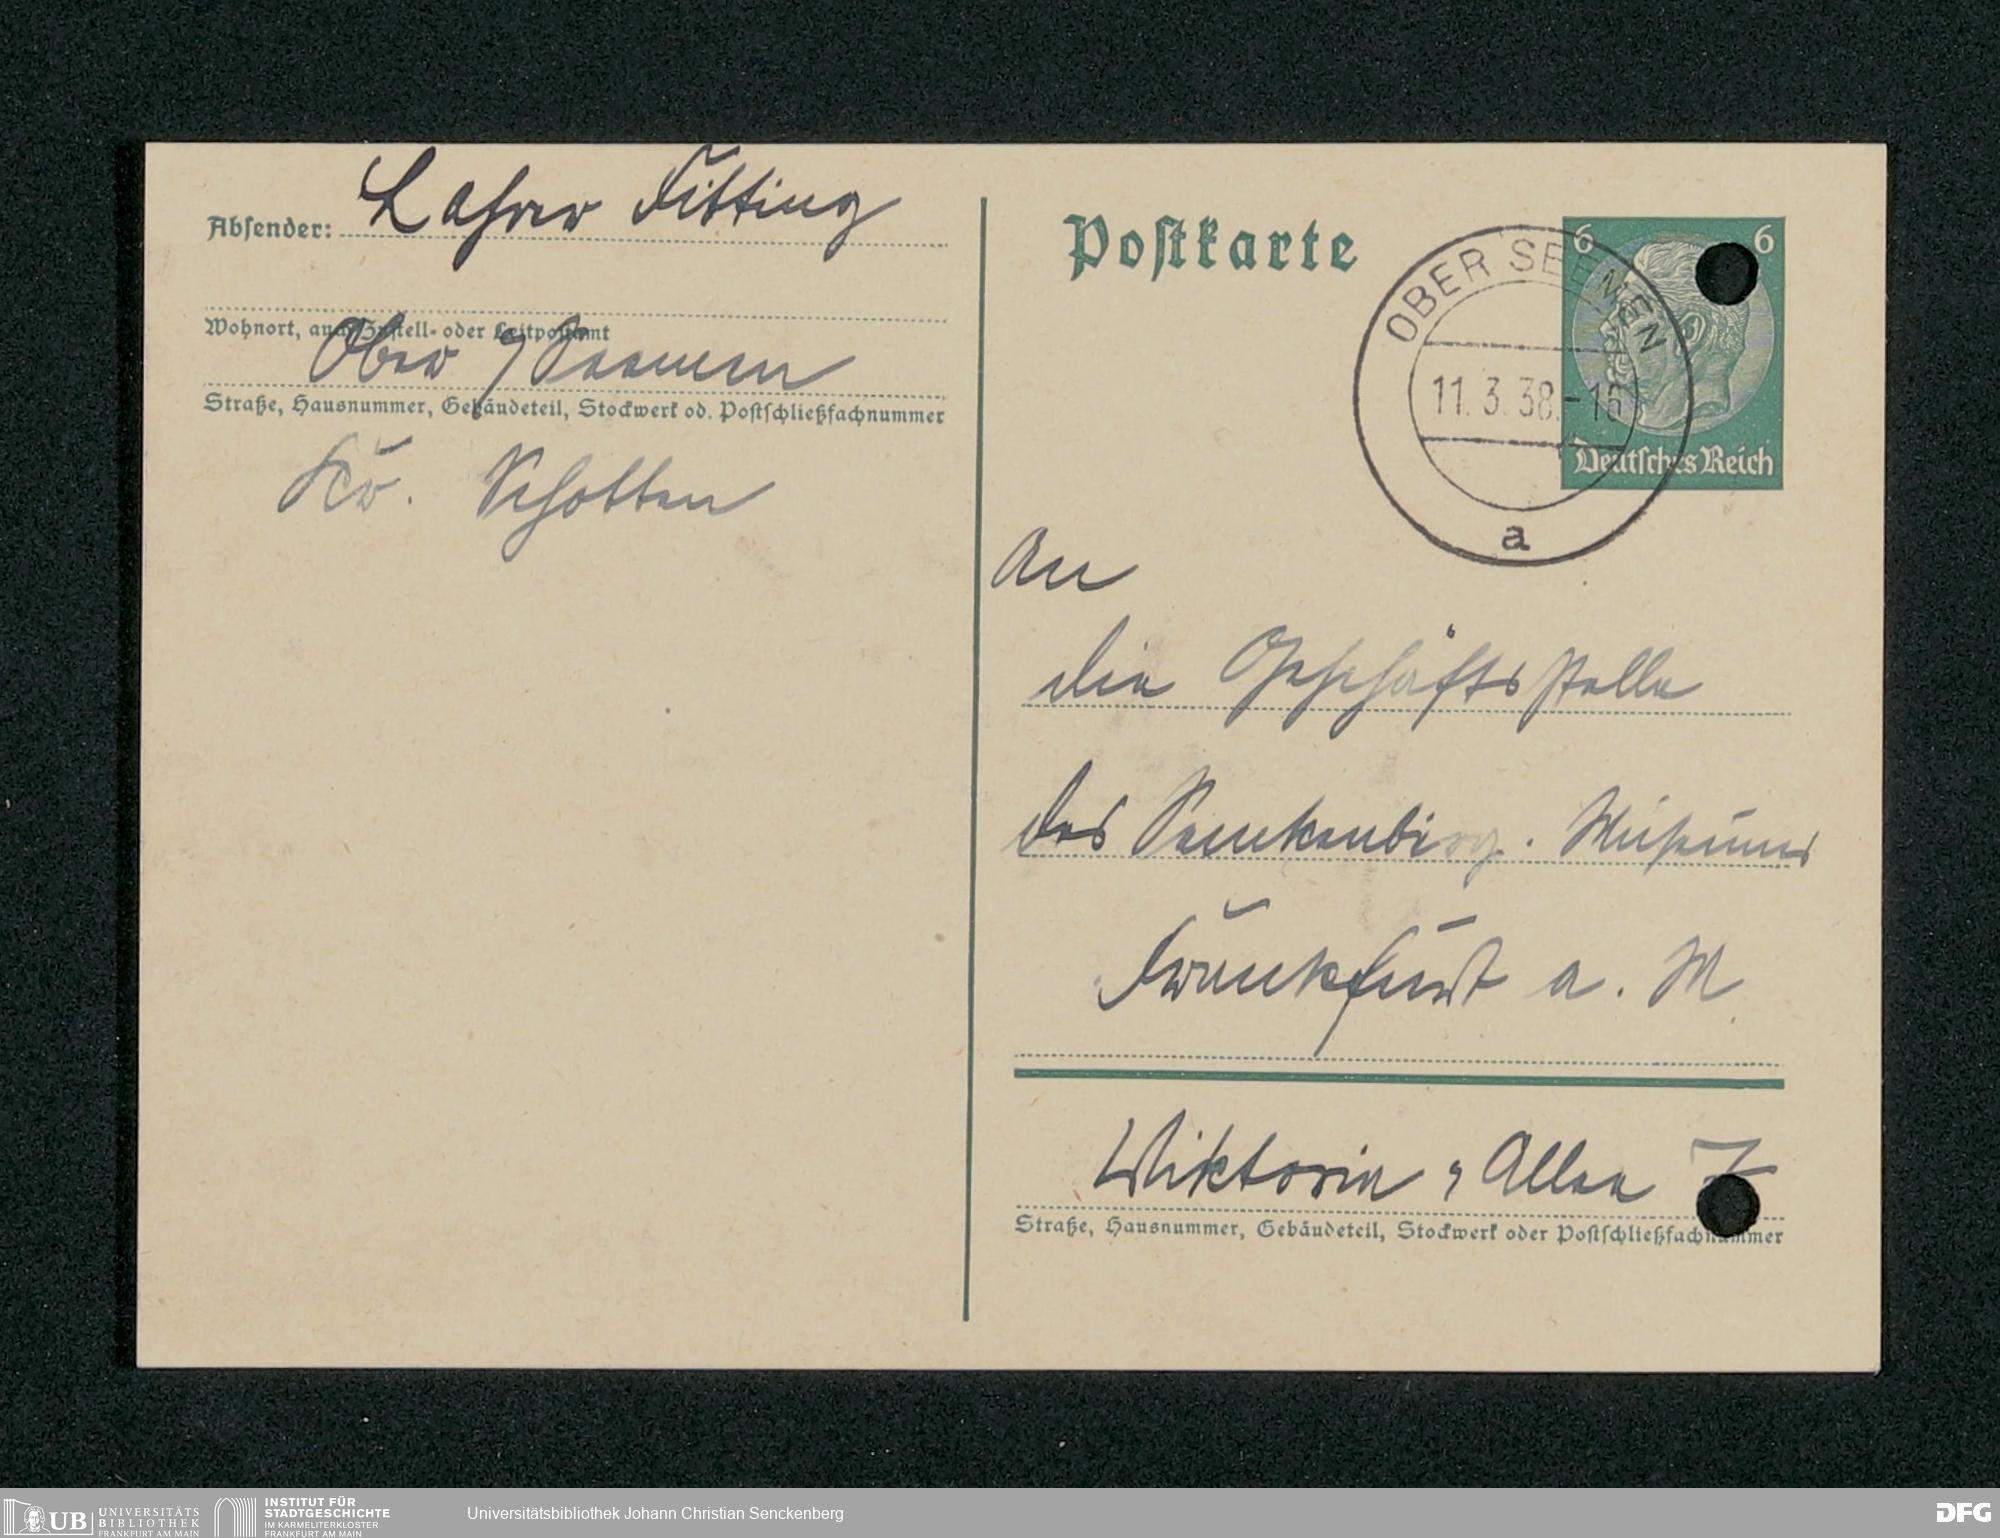 Absender: Lehrer Fitting
Wohnort, auch Zustell- oder Leitpostamt
Ober/Seemen
Straße, Hausnummer, Gebäudeteil, Stockwerk od. Postschließfachnummer
Kr. Schotten
Postkarte
6 6
Deutsches Reich
OBER SEEMEN
11.3.38.-16
a
An
die Geschäftsstelle
des Senckenberg. Museums
Frankfurt a. M.
Wiktoria-Allee 7
Straße, Hausnummer, Gebäudeteil, Stockwerk oder Postschließfachnummer
UB UNIVERSITÄTS
BIBLIOTHEK
FRANKFURT AM MAIN
INSTITUT FÜR
STADTGESCHICHTE
IM KARMELITERKLOSTER
FRANKFURT AM MAIN
Universitätsbibliothek Johann Christian Senckenberg
DFG